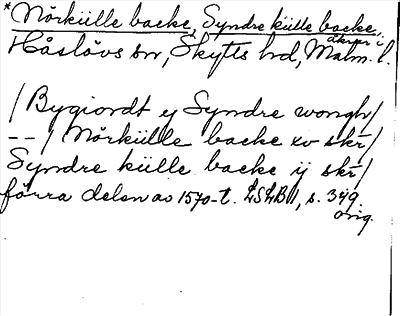 *Nörkülle backe, Syndre külle backe,
åkrar i
Håslövs sn, Skytts hd, Malm. l.
/Bygiordt ej Syndre wongh/
--/ Nörkülle backe xv skr/
Syndre külle backe ij skr/
förra delen av 1570-t. LSLB 1, s. 349.
orig.